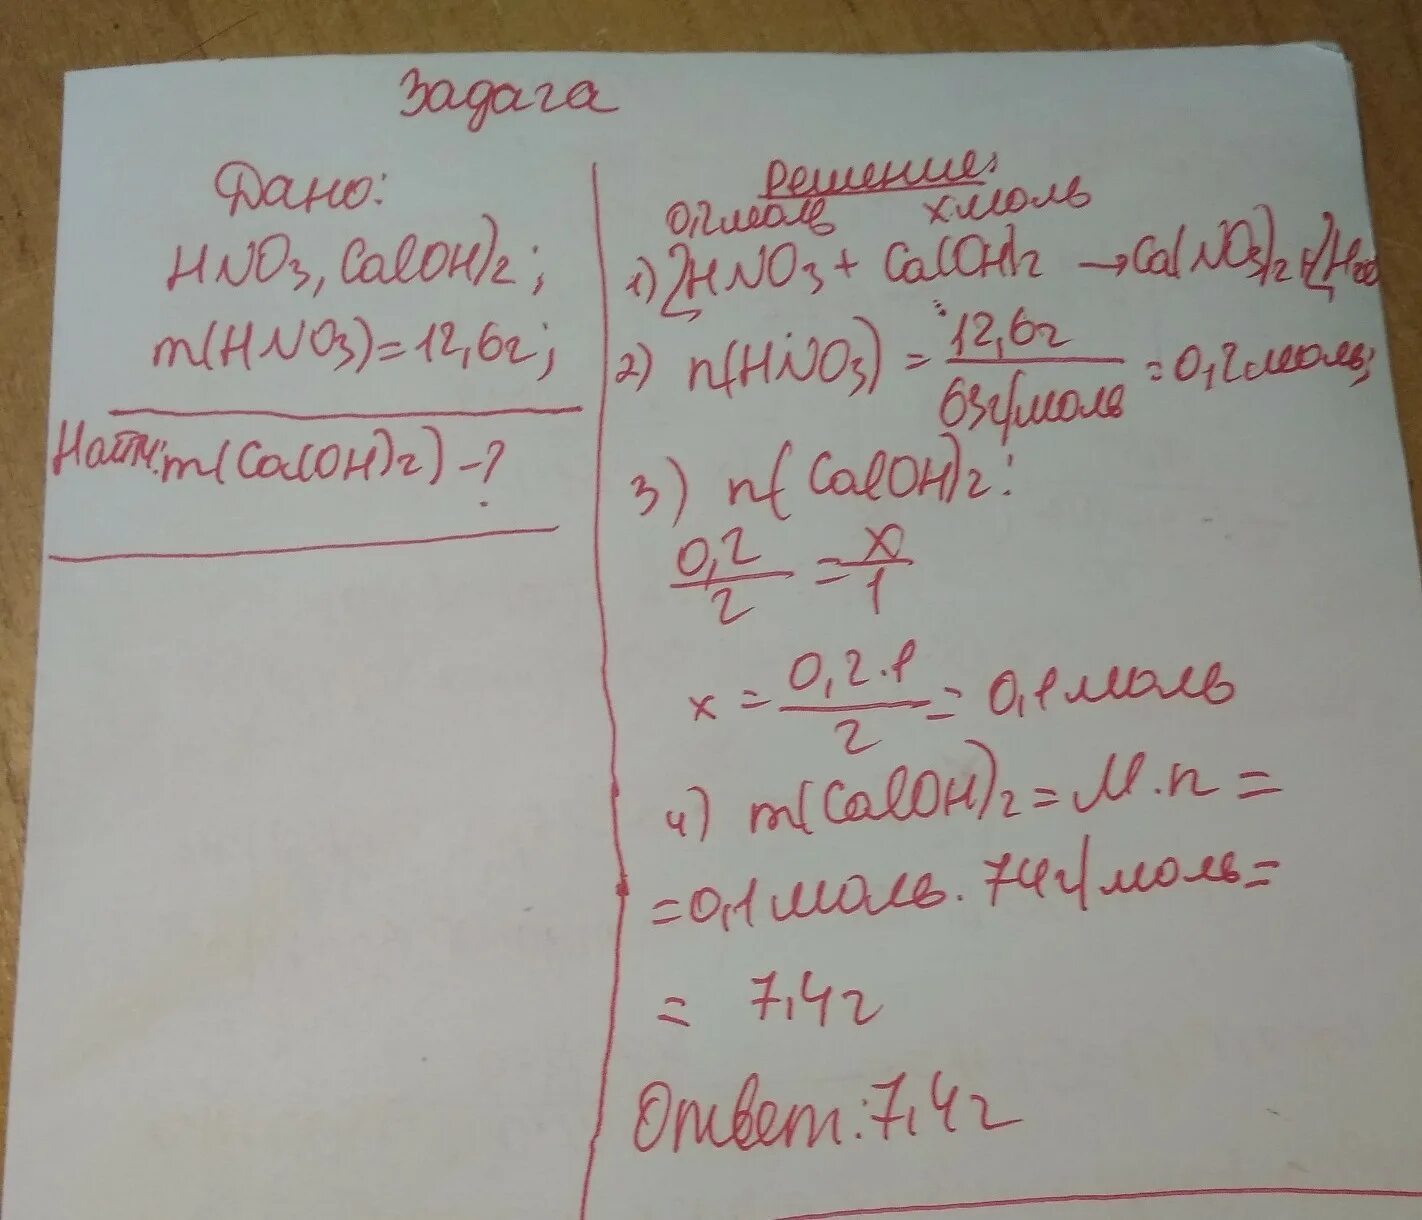 Задача
Дано:
HNO3, Ca(OH)2;
m(HNO3)=12,6г;
Найти: m(Ca(OH)2) -?
Решение:
0,2моль хмоль
1) 2HNO3 + Ca(OH)2 → Ca(NO3)2 + 2H2O
2) n(HNO3) = 12,6г / 63г/моль = 0,2моль;
3) n(Ca(OH)2:
0,2/2 = x/1
x = 0,2·1/2 = 0,1моль
4) m(Ca(OH)2 = M·n =
=0,1моль·74г/моль=
= 7,4г
Ответ: 7,4г